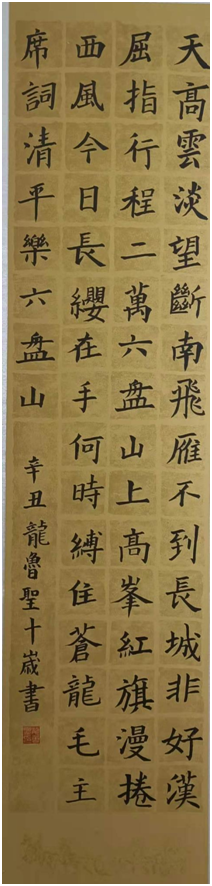 天高雲淡望斷南飛雁不到長城非好漢
屈指行程二萬六盘山上高峯紅旗漫捲
西風今日長纓在手何時縛住蒼龍毛主
席詞清平樂六盘山
辛丑龍魯聖十歲書